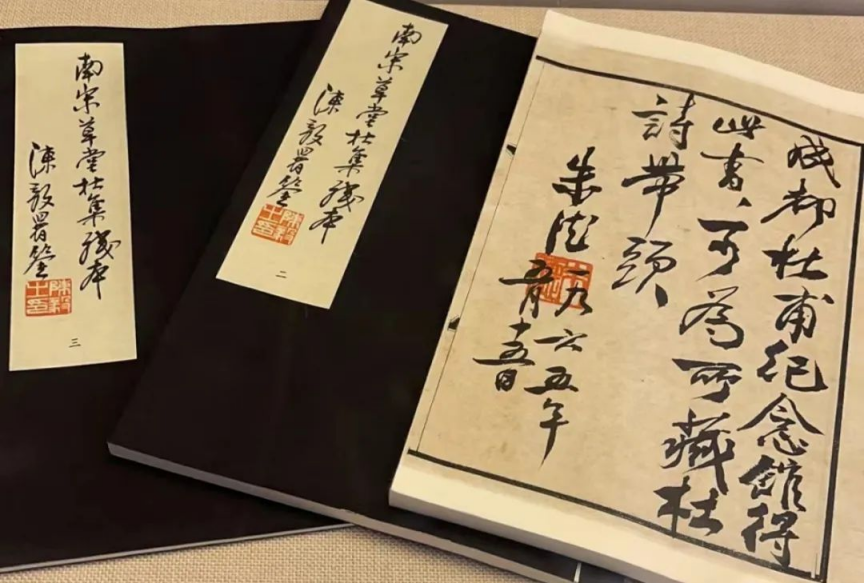 南宋草堂杜集殘本
陳毅署簽
三
南宋草堂杜集殘本
陳毅署簽
二
成都杜甫紀念館得
此書、可為所藏杜
詩帶頭、
朱德
一九六五年
五月十五日